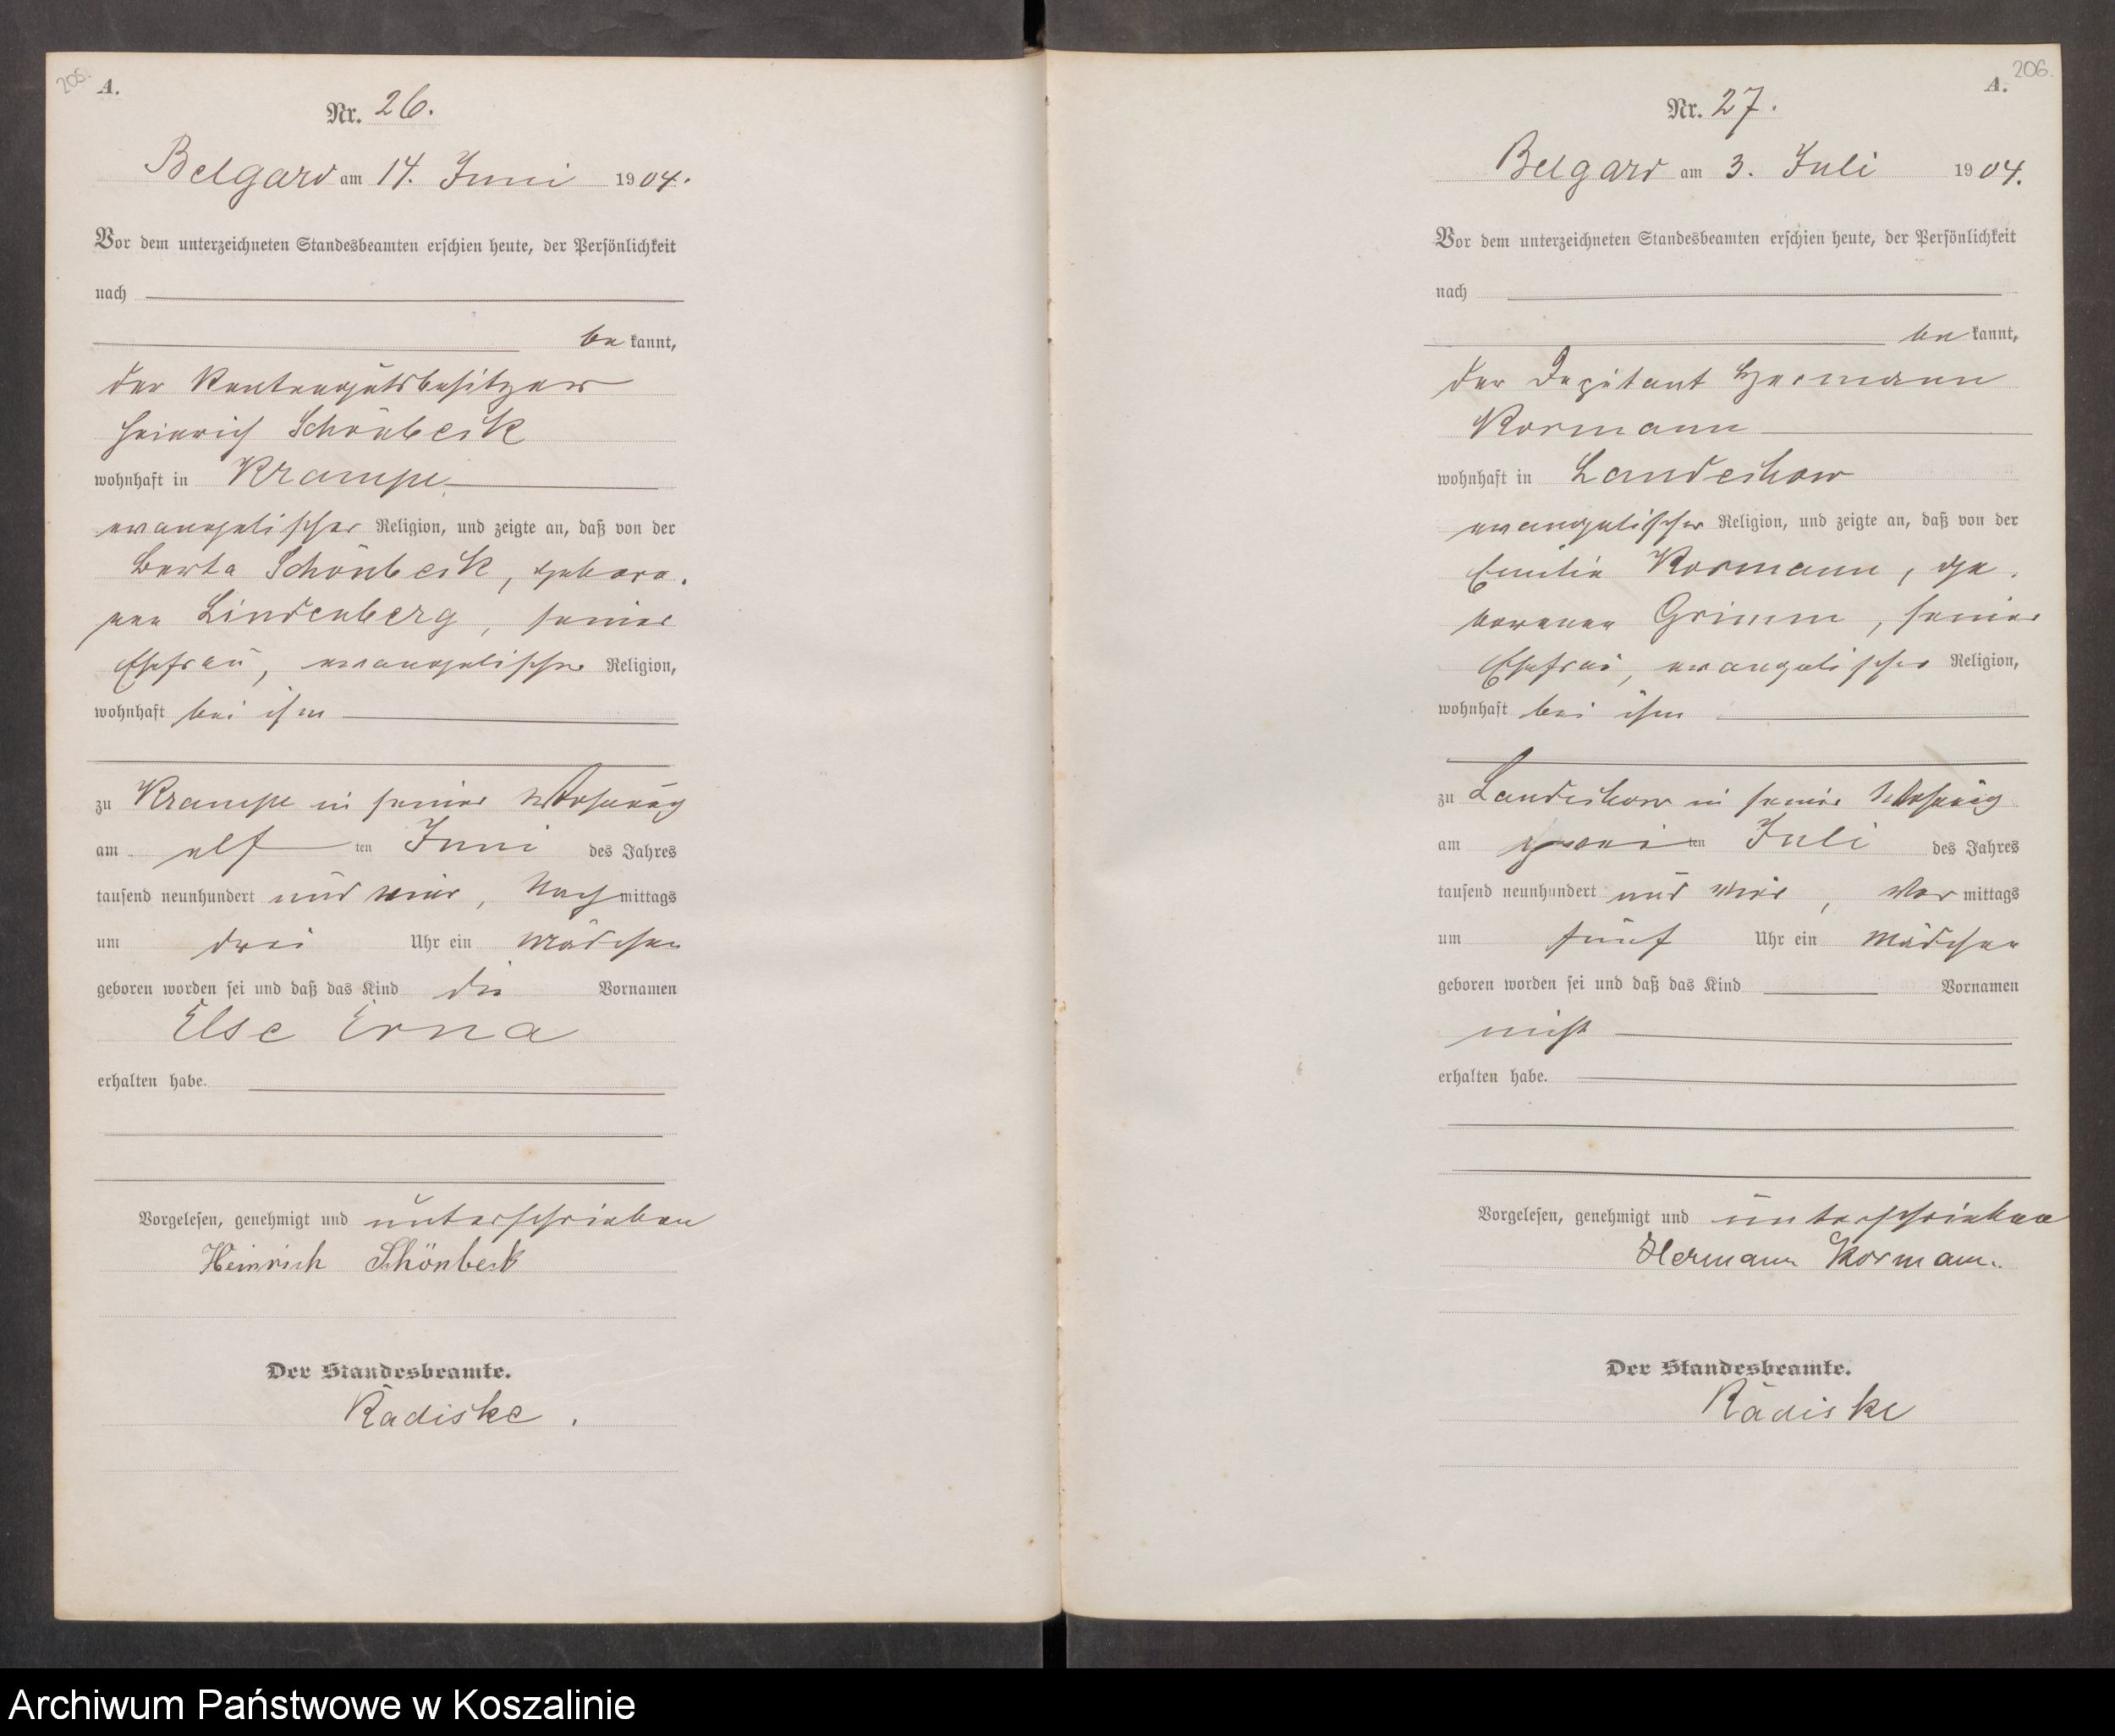 205.
A.
Nr. 26.
Belgard am 14. Juni 1904.
Vor dem unterzeichneten Standesbeamten erschien heute, der Persönlichkeit
nach
be kannt,
der Rentengutsbesitzer
Heinrich Schönbeck
wohnhaft in Krampe
evangelischer Religion, und zeigte an, daß von der
Berta Schönbeck, gebore-
nen Lindenberg, seiner
Ehefrau, evangelischer Religion,
wohnhaft bei ihm
zu Krampe in seiner Wohnung
am elf ten Juni des Jahres
tausend neunhundert und vier, Nach mittags
um drei Uhr ein Mädchen
geboren worden sei und daß das Kind die Vornamen
Else Erna
erhalten habe.
Vorgelesen, genehmigt und unterschrieben
Heinrich Schönbeck
Der Standesbeamte.
Radiske.
206.
A.
Nr. 27.
Belgard am 3. Juli 1904.
Vor dem unterzeichneten Standesbeamten erschien heute, der Persönlichkeit
nach
be kannt,
der Deputant Hermann
Kormann
wohnhaft in Landechow
evangelischer Religion, und zeigte an, daß von der
Emilie Kormann, ge-
borenen Grimm, seiner
Ehefrau, evangelischer Religion,
wohnhaft bei ihm
zu Landechow in seiner Wohnung
am zwei ten Juli des Jahres
tausend neunhundert und vier, Vor mittags
um fünf Uhr ein Mädchen
geboren worden sei und daß das Kind Vornamen
nicht
erhalten habe.
Vorgelesen, genehmigt und unterschrieben
Hermann Kormann.
Der Standesbeamte.
Radiske
Archiwum Państwowe w Koszalinie